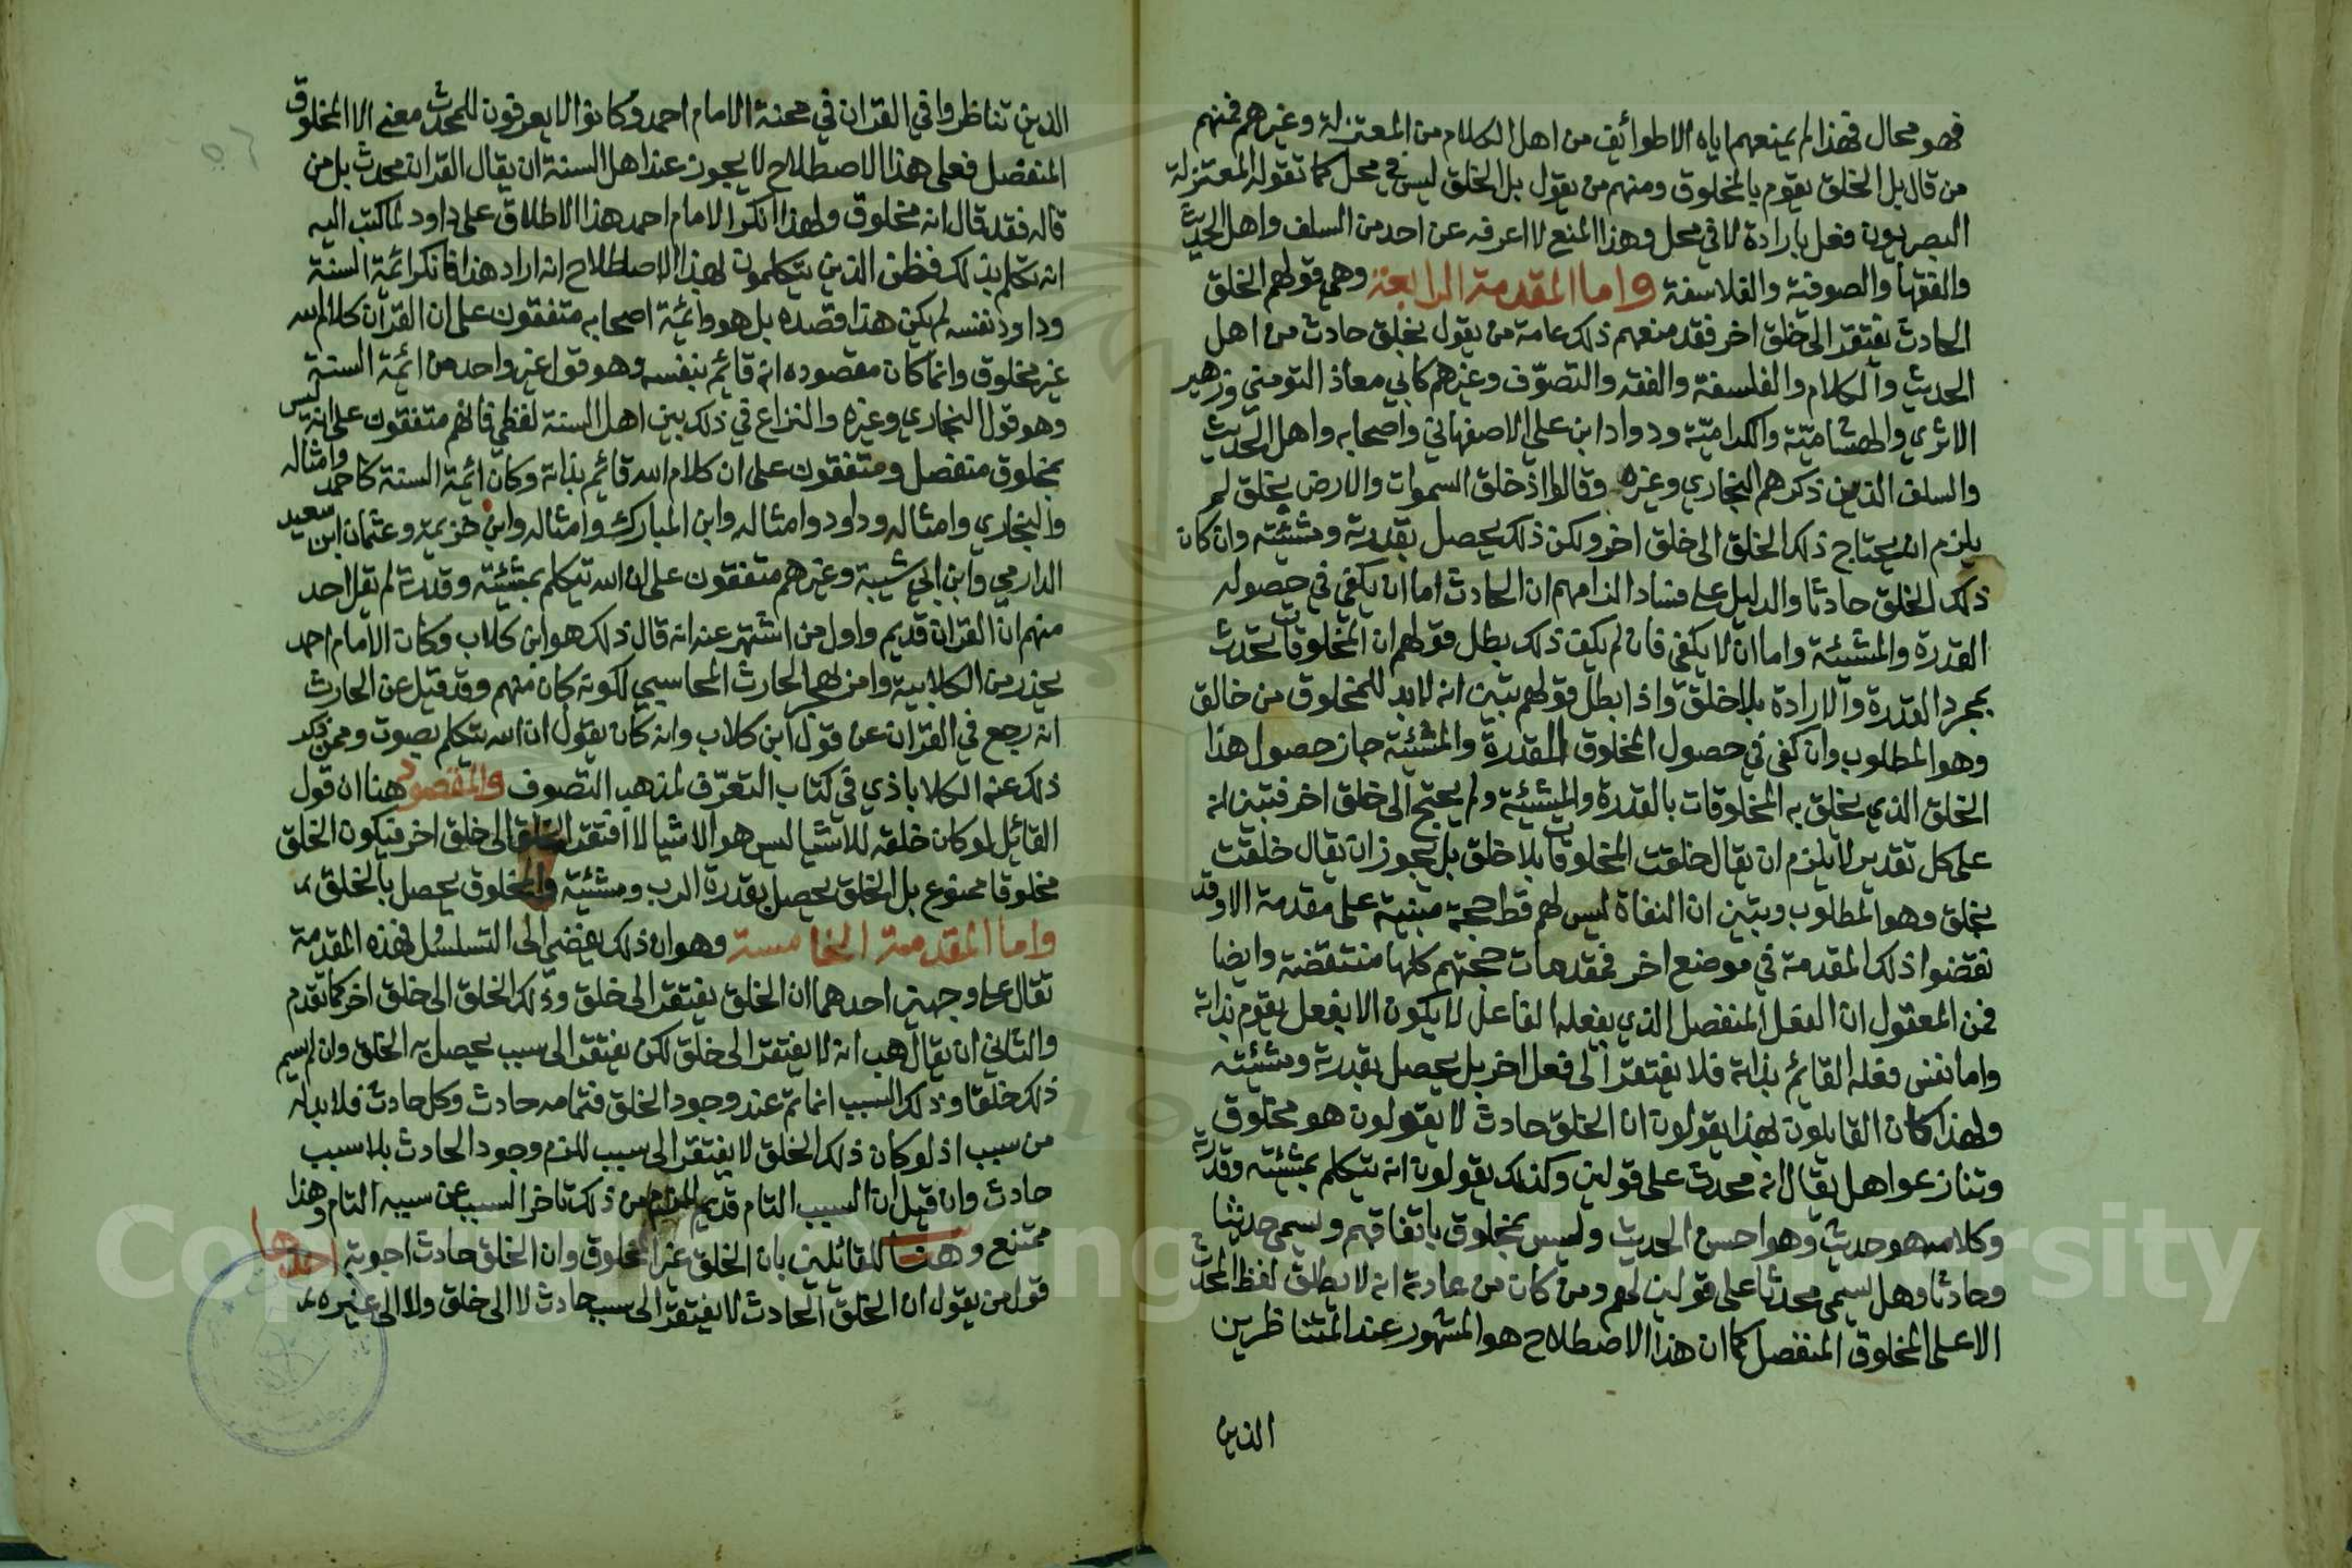 فهو محال فهذا لم يمنعهم اياه الا طوائف من اهل الكلام من المعتزلة وغيرهم فمنهم
من قال بل الخلق يقوم بالمخلوق ومنهم من يقول بل الخلق ليس في محل كما تقوله المعتزلة
البصريون فعل بارادة لا في محل وهذا المنع لا اعرفه عن احد من السلف واهل الحديث
والفقها والصوفية والفلاسفة واما المقدمة الرابعة وهي قولهم الخلق
الحادث يفتقر الى خلق اخر فقد منعهم ذلك عامة من يقول بخلق حادث من اهل
الحديث والكلام والفلسفة والفقه والتصوّف وغيرهم كابي معاذ التومني وزهير
الاثري والهشاميّة والكراميّة ودواد ابن علي الاصفهاني واصحابه واهل الحديث
والسلف الذين ذكرهم البخاري وغيره وقالوا اذ خلق السموات والارض بخلق لم
يلزم انه يحتاج ذلك الخلق الى خلق اخر ولكن ذلك يحصل بقدرته ومشئيته وان كان
ذلك الخلق حادثا والدليل على فساد الزامهم ان الحادث اما ان يكفي في حصوله
القدرة والمشيئة واما ان لا يكفي فان لم يكف ذلك بطل قولهم ان المخلوقات تحدث
بمجرد القدرة والارادة بلا خلق واذا بطل قولهم تبين انه لا بد للمخلوق من خالق
وهو المطلوب وان كفى في حصول المخلوق القدرة والمشئية جاز حصول هذا
الخلق الذي يخلق به المخلوقات بالقدرة والمشئية ولم يحتج الى خلق اخر فتبين انه
على كل تقدير لا يلزم ان يقال خلقت المخلوقات بلا خلق بل يجوز ان يقال خلقت
بخلق وهو المطلوب وتبين ان النفاة ليس لهم قط حجة مبنية على مقدمة الا وقد
نقضوا ذلك المقدمة في موضع اخر فمقدمات حجتهم كلها منتقضة وايضا
فمن المعقول ان الفعل المنفصل الذي يفعله الفاعل لا يكون الا بفعل يقوم بذاته
واما نفس فعله القائم بذاته فلا يفتقر الى فعل اخر بل يحصل بقدرته ومشئيته
ولهذا كان القايلون بهذا يقولون ان الخلق حادث لا يقولون هو مخلوق
وتنازعوا هل يقال انه محدث على قولين وكذلك يقولون انه يتكلم بمشئيته وقدرته
وكلامه هو حديث وهو احسن الحديث وليس بمخلوق باتفاقهم ويسمى حديثا
وحادثا وهل يسمى محدثا على قولين لهم ومن كان من عادته انه لا يطلق لفظ المحدث
الا على المخلوق المنفصل كما ان هذا الاصطلاح هو المشهور عند المتناظرين
الذين
الذين تناظروا في القران في محنة الامام احمد وكانوا لا يعرفون للمحدث معنى الا المخلوق
المنفصل فعلى هذا الاصطلاح لا يجوز عند اهل السنة ان يقال القران محدث بل من
قاله فقد قال انه مخلوق ولهذا انكر الامام احمد هذا الاطلاق على داود لما كتب اليه
انه تكلم بذلك فظن الذين يتكلمون بهذا الاصطلاح انه اراد هذا فانكر ائمة السنة
وداود نفسه لم يكن هذا قصده بل هو وائمة اصحابه متفقون على ان القرآن كلام الله
غير مخلوق وانما كان مقصوده انه قائم بنفسه وهو قول غير واحد من ائمة السنة
وهو قول البخاري وغيره والنزاع في ذلك بين اهل السنة لفظي فانهم متفقون على انه ليس
بمخلوق منفصل ومتفقون على ان كلام الله قائم بذاته وكان ائمة السنة كاحمد وامثاله
والبخاري وامثاله وداود وامثاله وابن المبارك وامثاله وابن خزيمة وعثمان ابن سعيد
الدارمي وابن ابي شيبة وغيرهم متفقون على ان الله يتكلم بمشئيته وقدرته لم يقل احد
منهم ان القران قديم واول من اشتهر عنه انه قال ذلك هو ابن كلاب وكان الامام احمد
يحذر من الكلابية وامر بهجر الحارث المحاسبي لكونه كان منهم وقد قيل عن الحارث
انه رجع في القرآن عن قول ابن كلاب وانه كان يقول ان الله يتكلم بصوت وممن ذكر
ذلك عنه الكلاباذي في كتاب التعرّف لمذهب التصوف والمقصود هنا ان قول
القائل لو كان خلقه للاشيا ليس هو الاشيا لافتقر الخلق الى خلق اخر فيكون الخلق
مخلوقا ممنوع بل الخلق يحصل بقدرة الرب ومشئيته والمخلوق يحصل بالخلق
واما المقدمة الخامسة وهو ان ذلك يفضي الى التسلسل فهذه المقدمة
تقال على وجهين احدهما ان الخلق يفتقر الى خلق وذلك الخلق الى خلق اخر كما تقدم
والثاني ان يقال هب انه لا يفتقر الى خلق لكن يفتقر الى سبب يحصل به الخلق وان لم يسم
ذلك خلقا وذلك السبب انما تم عند وجود الخلق فتمامه حادث وكل حادث فلا بد له
من سبب اذ لو كان ذلك الخلق لا يفتقر الى سبب للزم وجود الحادث بلا سبب
حادث وان قيل ان السبب التام قديم للزم من ذلك تاخر السبب عن سببه التام وهذا
ممتنع وهنا للقائلين بان الخلق غير المخلوق وان الخلق حادث اجوبة احدها
قول من يقول ان الخلق الحادث لا يفتقر الى سبب حادث لا الى خلق ولا الى غيره
Copyright © King Saud University